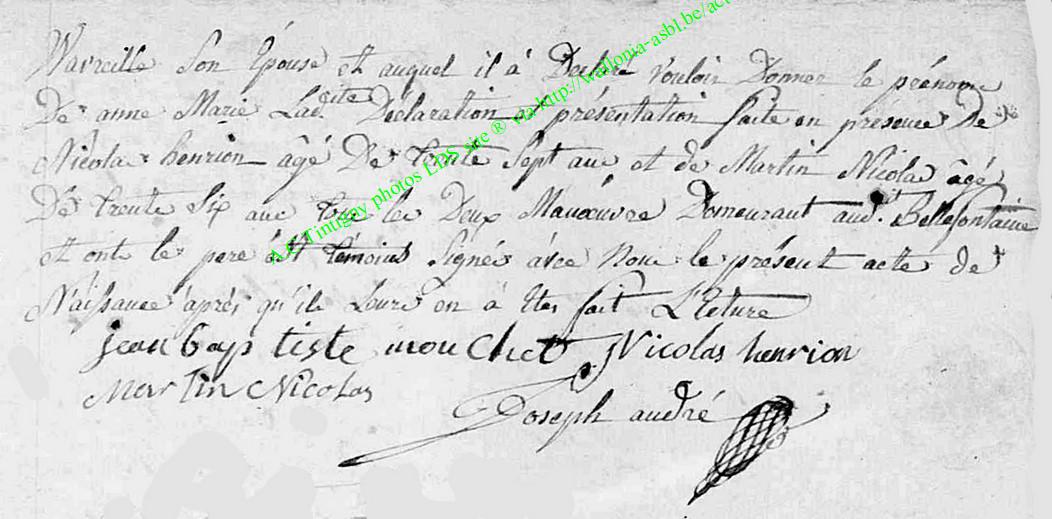 Wavreille Son Epouse et auquel il à Declaré vouloir Donner le prénom
De anne Marie Ladite Déclaration et présentation faite en présence De
Nicolas henrion âgé De trente Sept ans et de Martin Nicolas âgé
De trente Six ans tous les Deux Manœuvre Demeurant aud.t Bellefontaine
et ont les pere ést témoins Signés ávec Nous le présent acte de
Naissance aprés qu'il Leurs en à Etes fait L'Ecture
jean bap tiste mouchet Nicolas henrion
Martin Nicolas
Joseph andré
Tintigny photos LDS site ® via http://wallonia-asbl.be/act